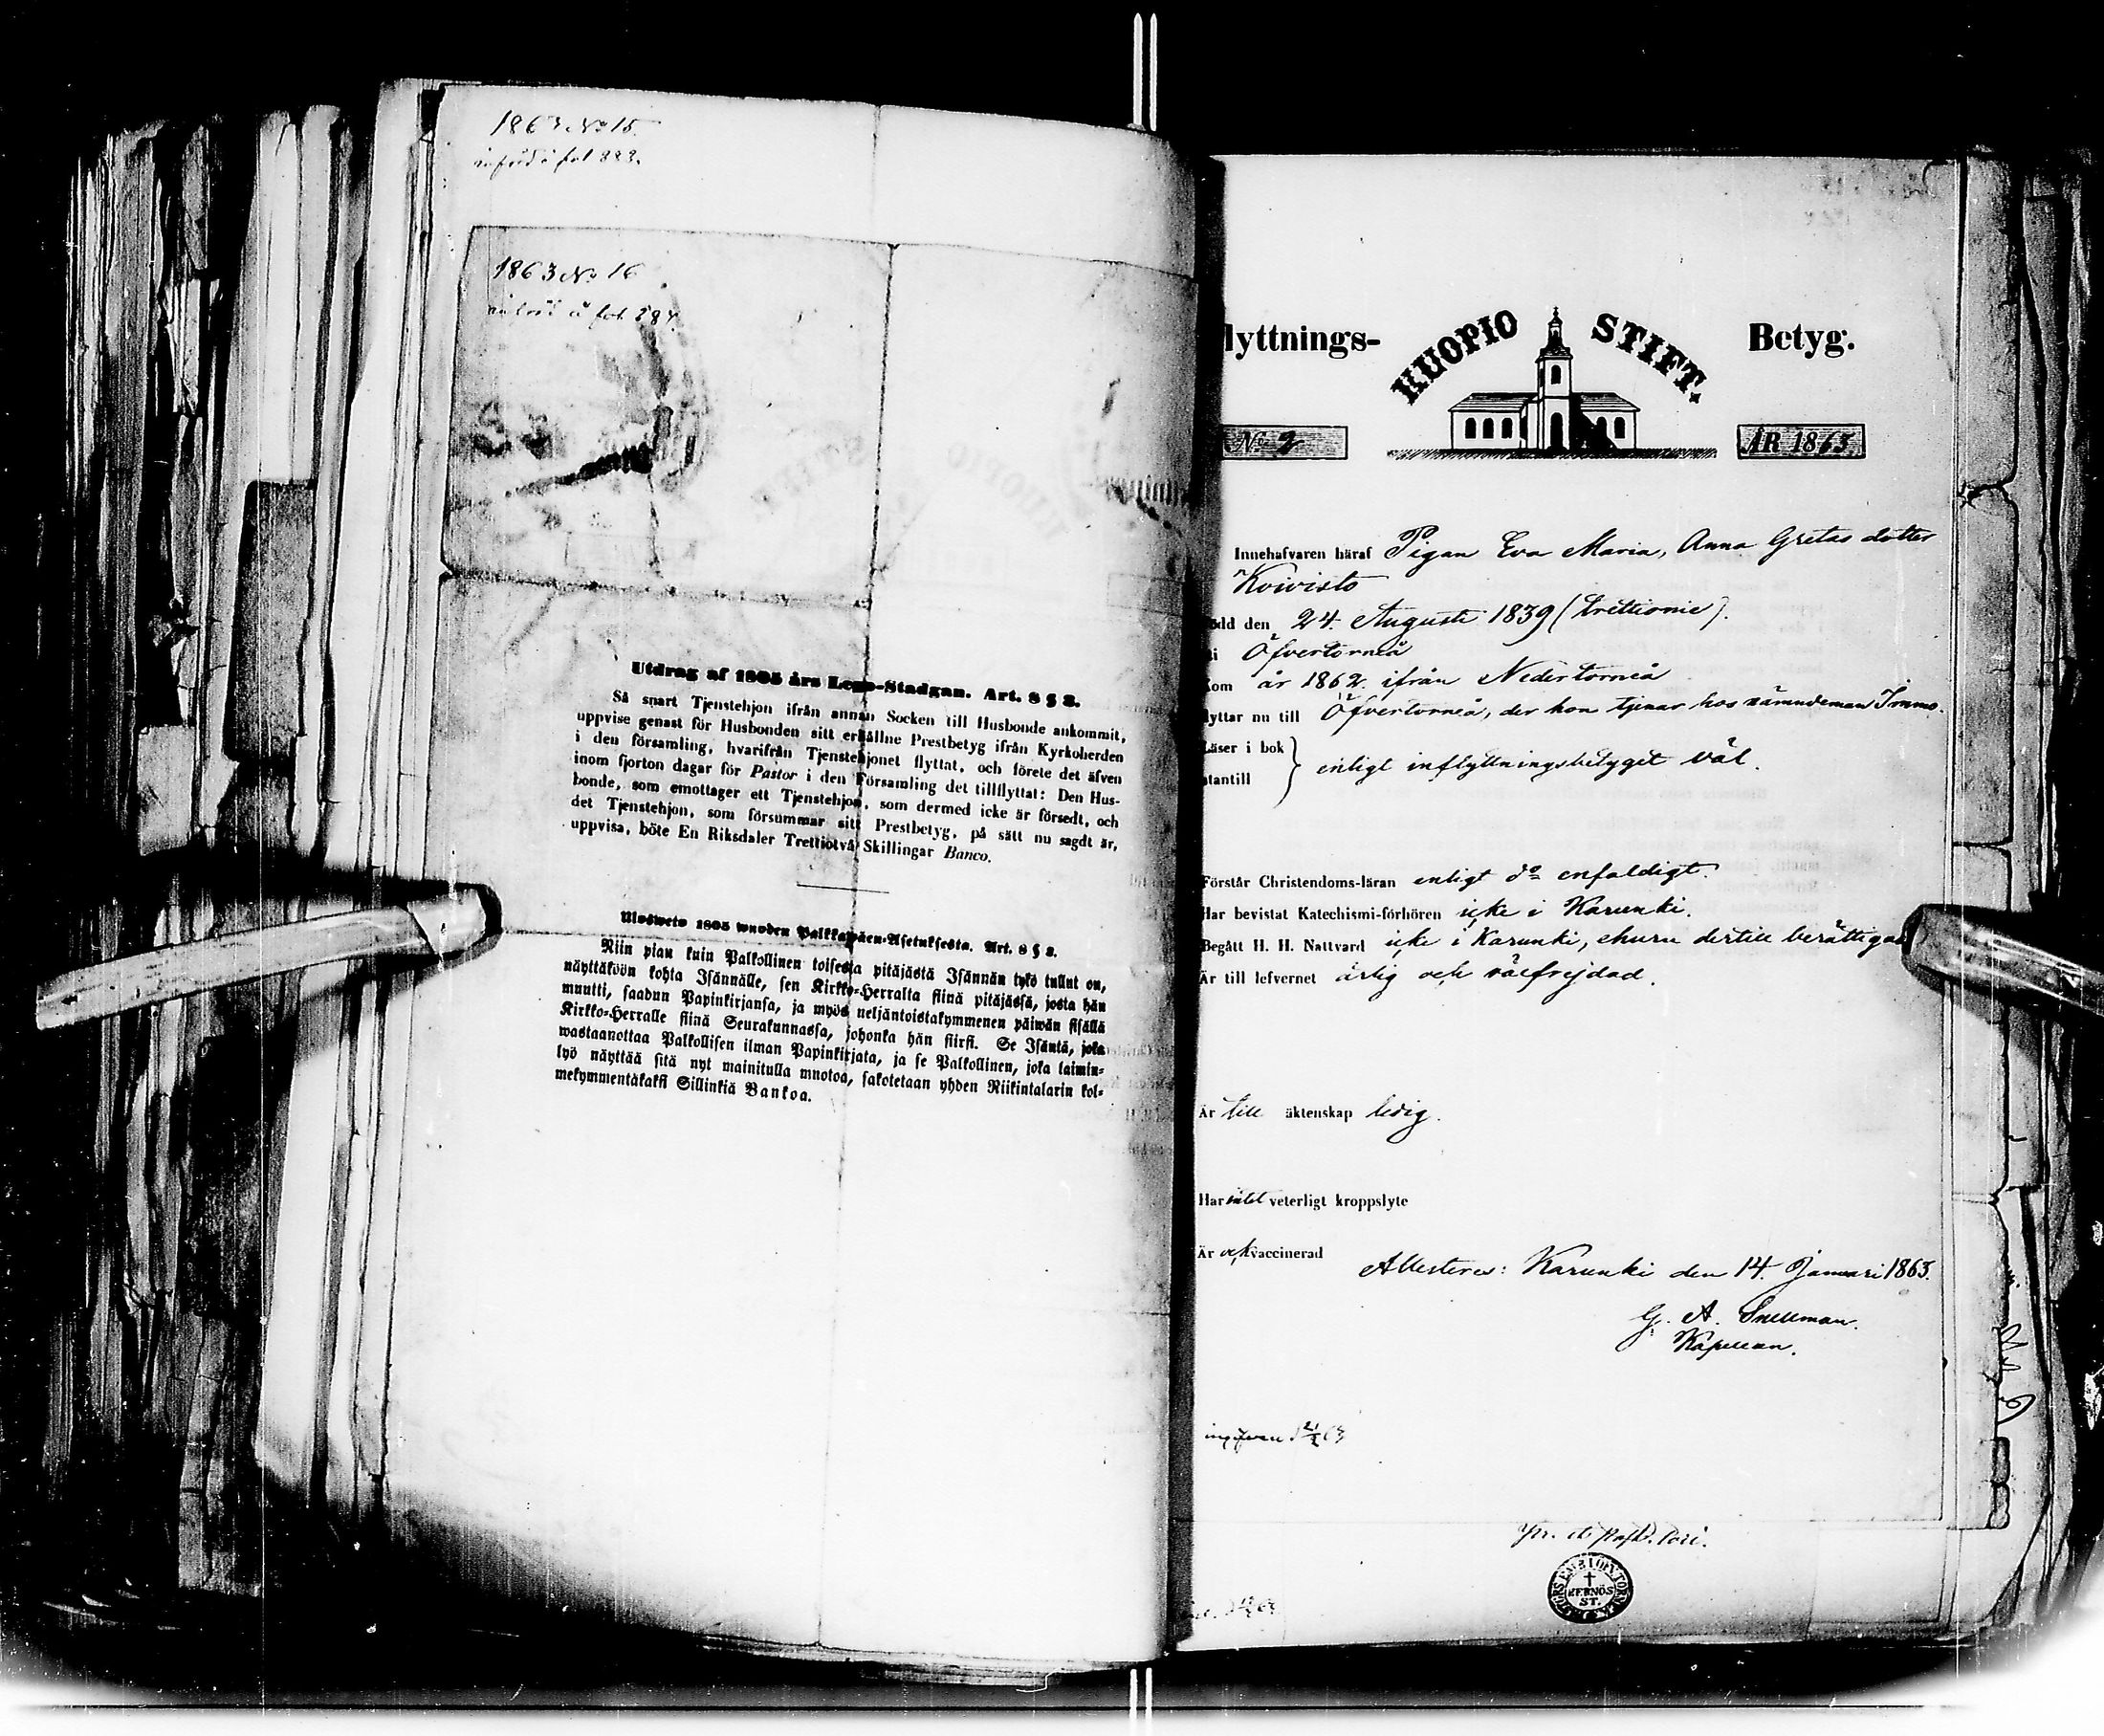 1863 No 15.
införd å fol 283.
1863 No 16
införd å fol. 284.
Utdrag af 1805 års Lego-Stadgan. Art. 8 § 2.
Så snart Tjenstehjon ifrån annan Socken till Husbonde ankommit,
uppvise genast för Husbonden sitt erhållne Prestbetyg ifrån Kyrkoherden
i den församling, hvarifrån Tjenstehjonet flyttat, och förete det äfven
inom fjorton dagar för Pastor i den Församling det tillflyttat: Den Hus-
bonde, som emottager ett Tjenstehjon, som dermed icke är försedt, och
det Tjenstehjon, som försummar sitt Prestbetyg, på sätt nu sagdt är,
uppvisa, böte En Riksdaler Trettiotvå Skillingar Banco.
Ulosweto 1805 wuoden Palkkawäen-Asetuksesta. Art. 8 § 2.
Niin pian kuin Palkollinen toisesta pitäjästä Isännän tykö tullut on,
näyttäköön kohta Isännälle, sen Kirkko-Herralta siinä pitäjässä, josta hän
muutti, saadun Papinkirjansa, ja myös neljäntoistakymmenen päiwän sisällä
Kirkko-Herralle siinä Seurakunnassa, johonka hän siirsi. Se Isäntä, joka
wastaanottaa Palkollisen ilman Papinkirjata, ja se Palkollinen, joka laimin-
lyö näyttää sitä nyt mainitulla muotoa, sakotetaan yhden Riikintalarin kol-
mekymmentäkaksi Sillinkiä Bankoa.
lyttnings- KUOPIO STIFT. Betyg.
No 2 ÅR 1863
Innehafvaren häraf Pigan Eva Maria, Anna Gretas dotter
Koivisto
ödd den 24. Augusti 1839 (trettionie).
i Öfvertorneå
Kom år 1862. ifrån Nedertorneå
lyttar nu till Öfvertorneå, der hon tjenar hos nämndeman Immo.
Läser i bok
utantill } enligt inflyttningsbetyget väl.
Förstår Christendoms-läran enligt do enfaldigt.
Har bevistat Katechismi-förhören icke i Karunki.
Begått H. H. Nattvard icke i Karunki, ehuru dertill berättigad
Är till lefvernet ärlig och välfrejdad.
Är till äktenskap ledig.
Har intet veterligt kroppslyte
Är ock vaccinerad
Attesteras: Karunki den 14. Januari 1863.
G. A. Snellman.
Kapellan.
KERNÖS
ST.